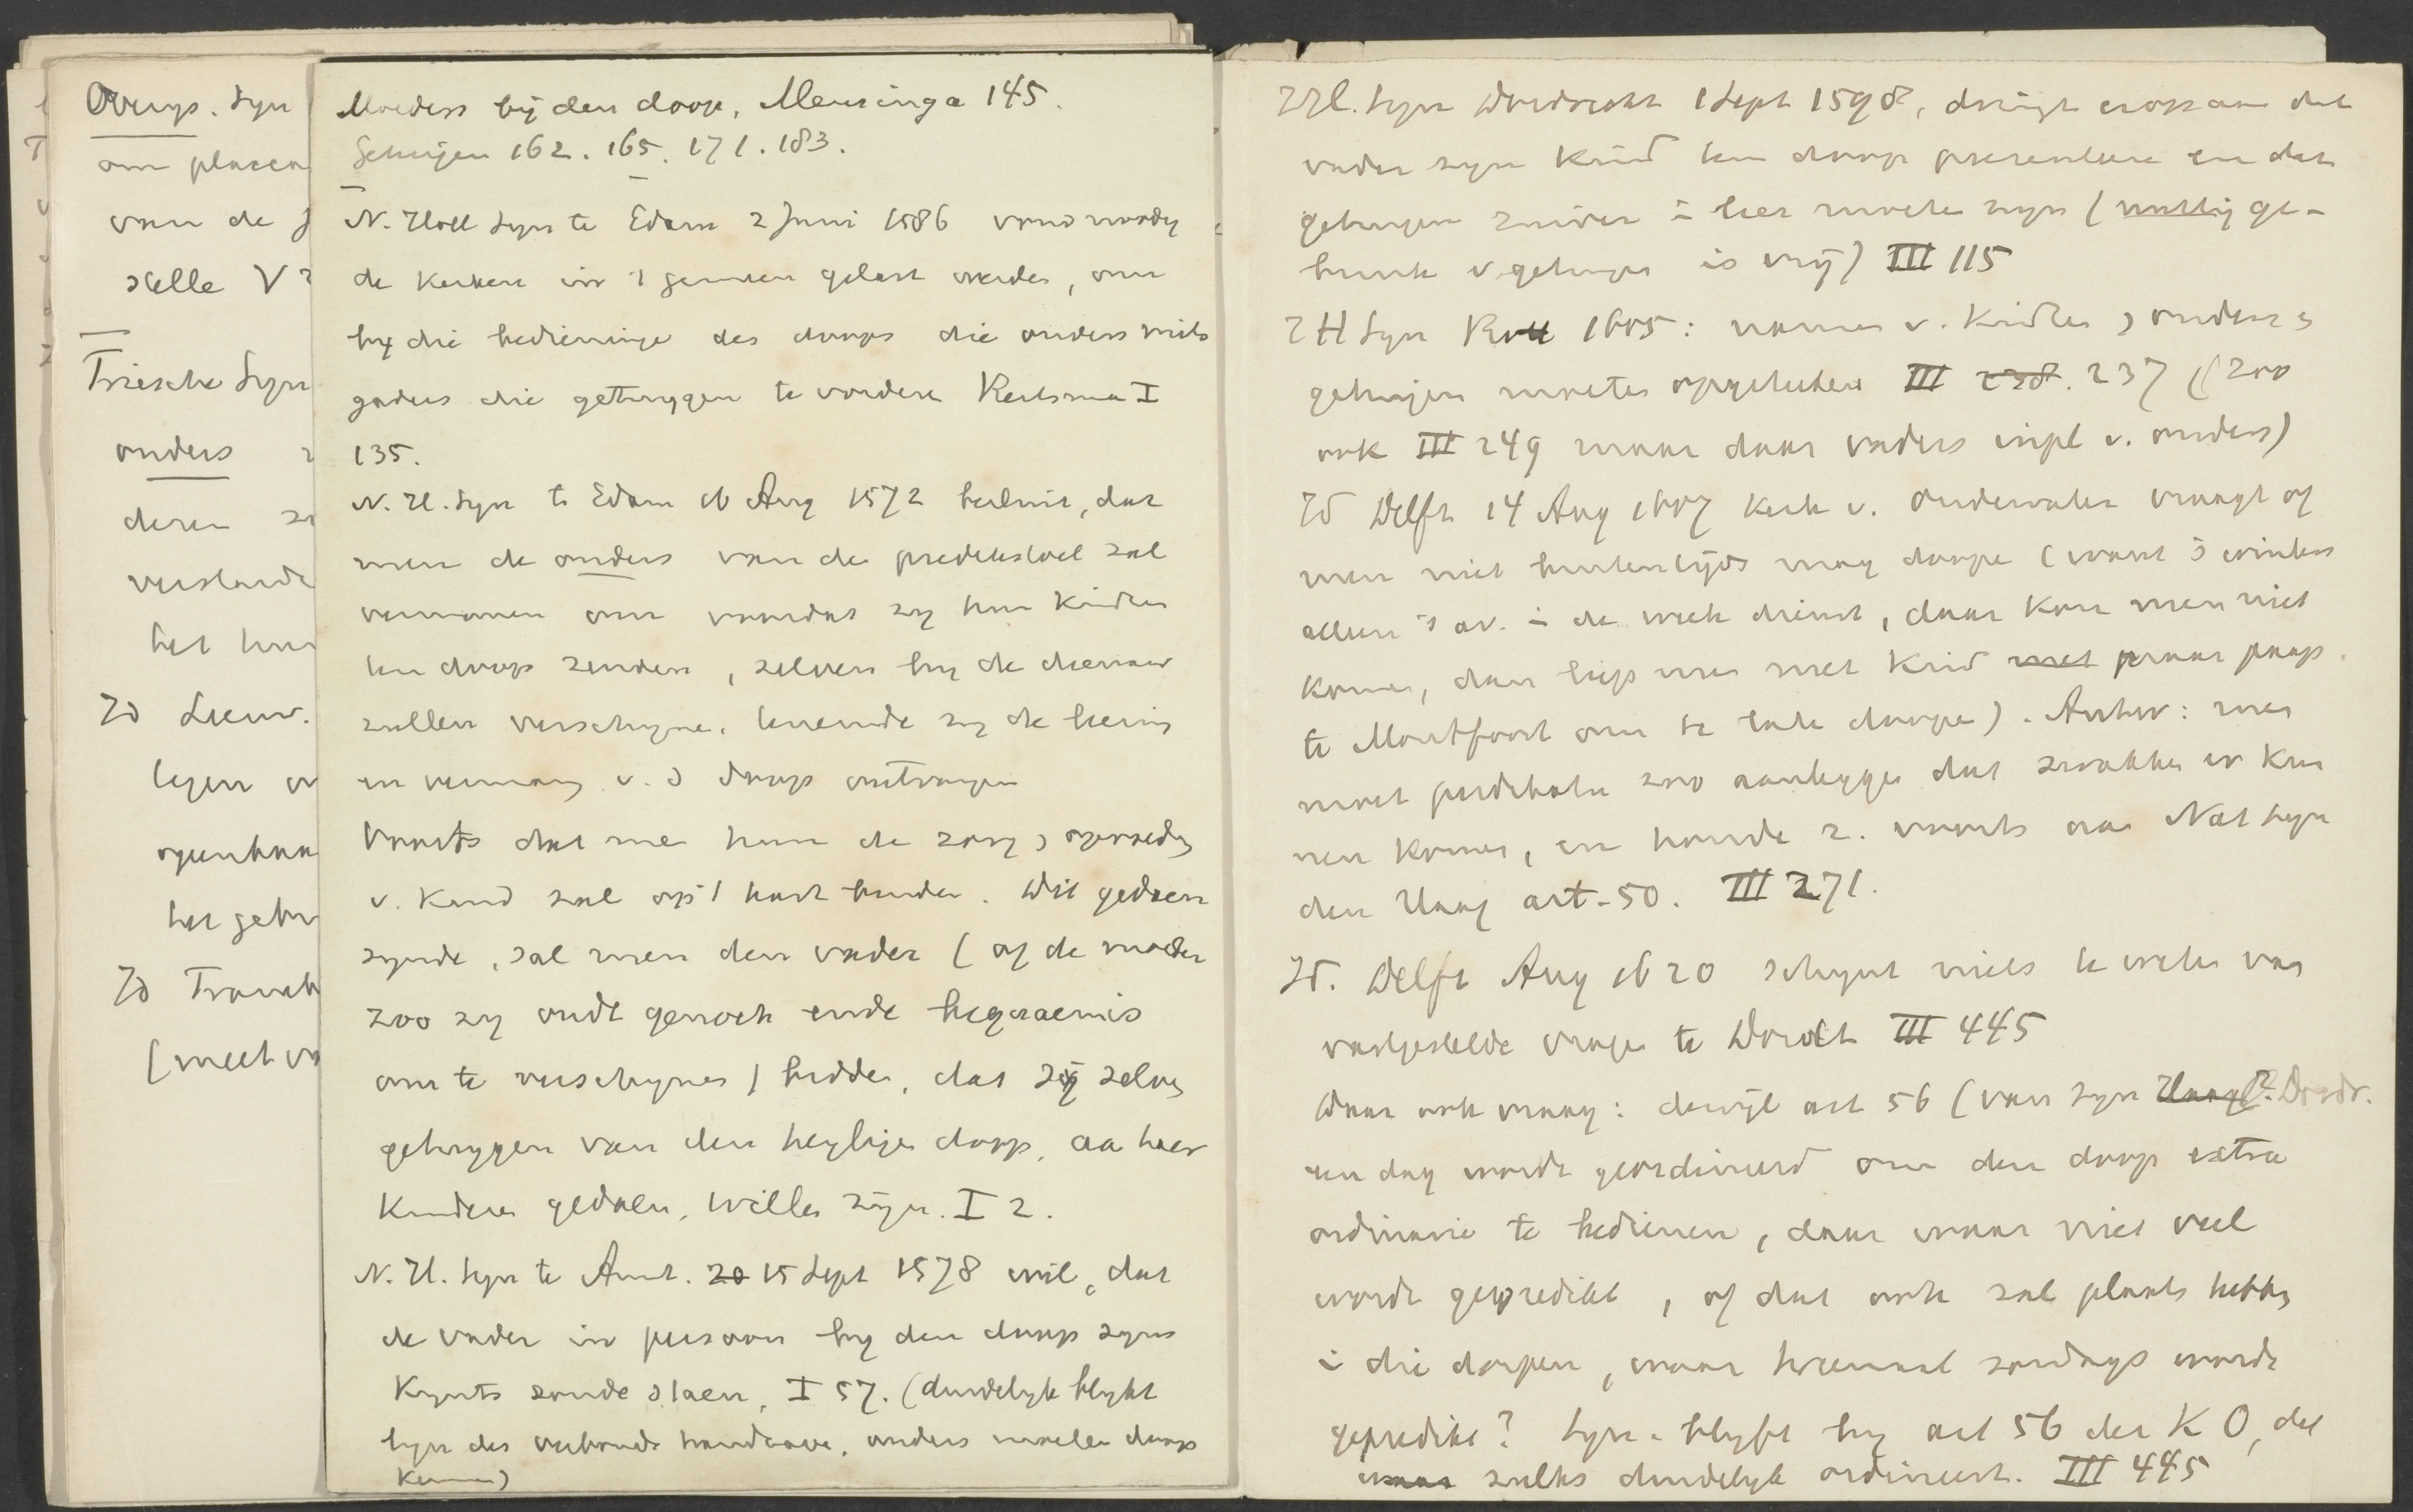 Overijs. Syn
om placca
van de
stelle V
Friesche Syn
ouders
deren
verstande
het
Id Leeuw.
tegen
openbaa
het getu
Id Franek
(meet va
Moeders bij den doop, Mensinga 145.
Getuigen 162. 165. 171. 183.
N. Holl Syn te Edam 2 Juni 1586 vond noodig
de kerken in 't gemeen gelast worden, om
by die bedieninge des doops die ouders mits
gaders die getuygen te vorderen Reitsma I
135.
N. H. Syn te Edam 16 Aug 1572 besluit, dat
men de ouders van de predikstoel zal
vermanen om voordat zy hun kindren
ten doop zenden, zelven by de dienaar
zullen verschyne, teneinde zy de
en verman v. d doop ontvangen
Voorts dat me hun de zorg opvoeding
v. kind zal op 't hart binden. Dit gedaen
synde, sal men den vader (of de moeder
zoo zy oudt genoch ende bequaem is
om te verschynen) bidden, dat zy selve
getuygen van den heylige doop, aa haer
kinderen gedaen, willen zijn. I 2.
N. H. Syn te Amst. 20 15 Sept 1578 wil, dat
de vader in persoon by den doop zyns
kynts zoude staen, I 57. (duidelyk blykt
tyn des verbonds handhave, anders moeten doop
kennen)
ZH. Syn Dordrecht 1 Sept 1598, dringt eropaan dat
vader zyn kind ten doop presenteere en dat
getuigen zuiver in leer moeten zyn (nuttig ge-
bruik v. getuigen is vrij) III 115
Z H Syn 1605: namen v. kindren, ouders,
getuigen moeten opgeteekend III 238. 237 (200
ook III 249 maar daar vaders inpl v. ouders)
Id Delft 14 Aug 1607 Kerk v. Oudewater vraagt of
men niet buitentijds mag doopen (want 's winters
alleen 's av. in de week dienst, daar kan men niet
komen, dan liep men met kind met naar paap
te Montfoort om te laten doopen). Antw: men
moet predikatie zoo aanleggen dat zwakken er kun
nen komen, en houde z. voorts aan Nat Syn
den Haag art. 50. III 271.
Id. Delft Aug 1620 schynt niets te weten van
vastgestelde vragen te Dordt III 445
Daar ook vraag: dewijl art 56 (van Syn Haag)? Dordr.
een dag wordt geordineerd om den doop extra
ordinarie te bedienen, daar waar niet veel
wordt gepredikt, of dat ook zal plaats hebben
in die dorpen, waar tweemaal zondags wordt
gepredikt? Syn. blyft by art 56 der K O, dat
waar zulks duidelyk ordineert. III 445